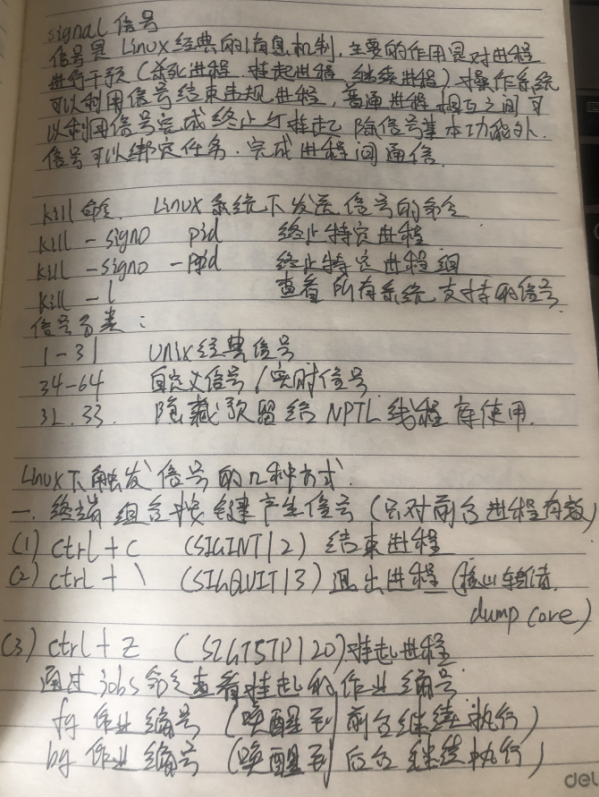 signal 信号
信号是 Linux 经典的消息机制，主要的作用是对进程
进行干预（杀死进程、挂起进程、继续进程）对操作系统
可以利用信号结束违规进程，普通进程相互之间可
以利用信号完成终止与挂起 除信号基本功能外，
信号可以绑定任务，完成进程间通信
kill 命令， Linux 系统下发送信号的命令
kill -signo pid 终止特定进程
kill -signo -pid 终止特定进程组
kill -l 查看所有系统支持的信号
信号名类：
1-31 Unix经典信号
34-64 自定义信号/实时信号
31.33. 隐藏预留给 NPTL线程库使用.
Linux下触发信号的几种方式.
一. 终端组合按键产生信号（只对前台进程有效）
(1) ctrl + c (SIGINT|2) 结束进程
(2) ctrl + \ (SIGQUIT|3) 退出进程（核心转储，
dump core）
(3) ctrl + z (SIGTSTP|20) 挂起进程
通过 jobs 命令查看挂起的作业编号
fg 作业编号（唤醒到前台继续执行）
bg 作业编号（唤醒到后台继续执行）